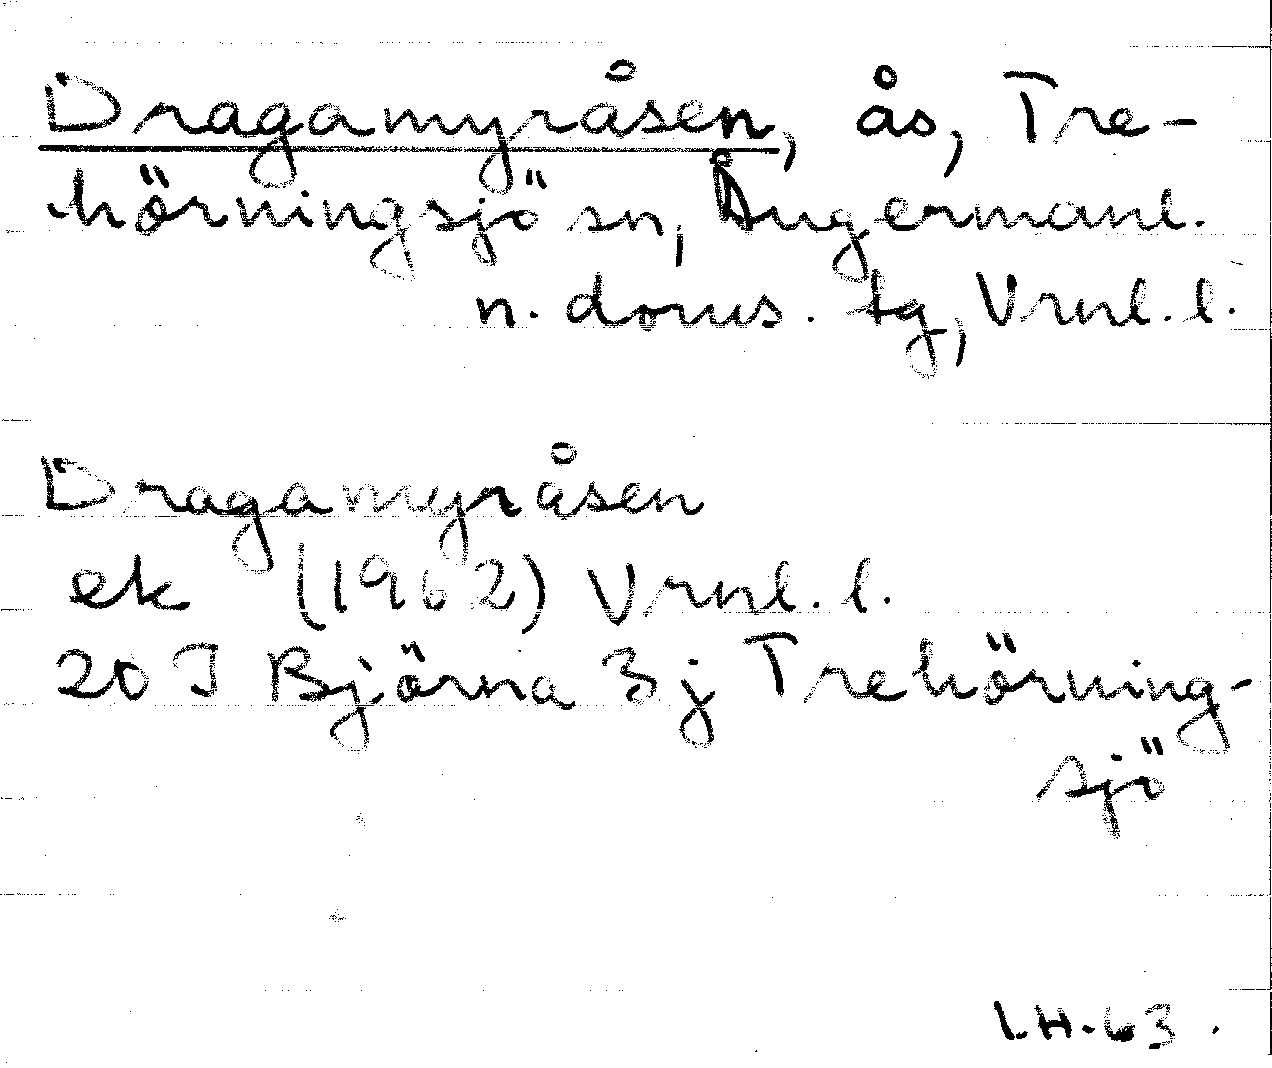 Dragamyråsen, ås, Tre-
hörningsjö sn, Ångermanl.
n. doms. tg, Vrnl. l.
Dragamyråsen
ek (1962) Vrnl. l.
20 I Björna 3 j Trehörning-
sjö
I.H.-63.